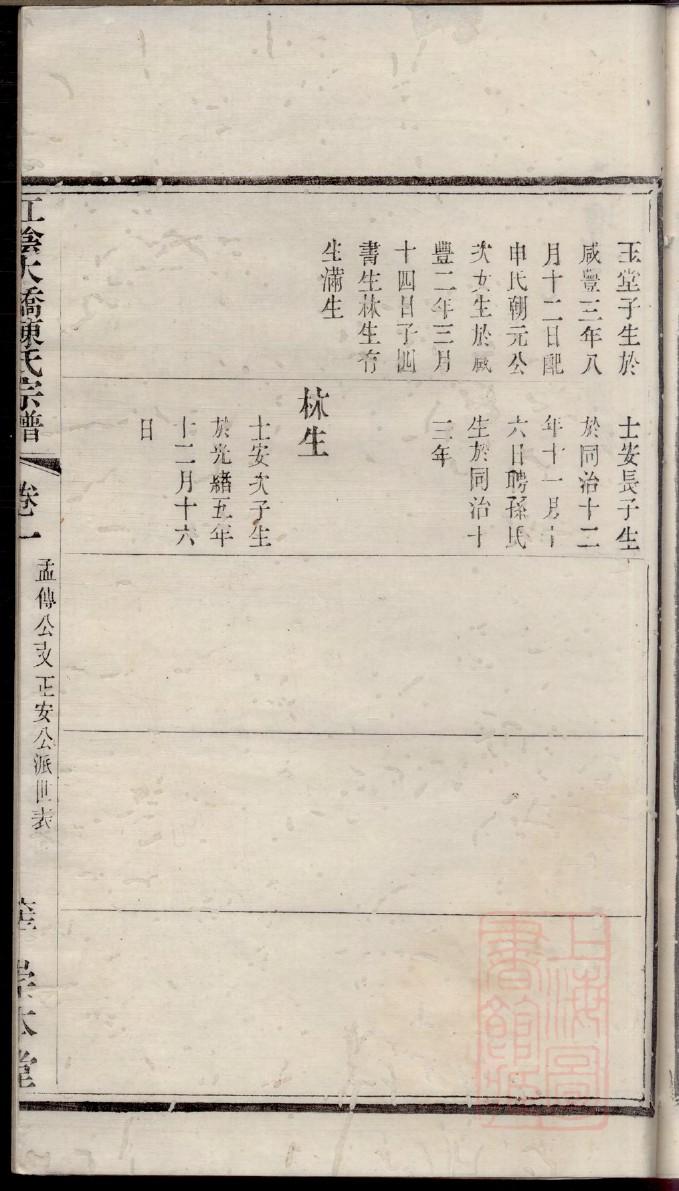 玉堂子生於
咸豐三年八
月十二日配
申氏朝元公
次女生於咸
豐二年三月
十四日子四
書生林生有
生滿生
士安長子生
於同治十二
年十一月十
六日聘孫氏
生於同治十
三年
林生
士安次子生
於光緒五年
十二月十六
日
江陰大橋陳氏宗譜
卷二
孟傳公支正安公派世表
本堂
上海圖書館藏